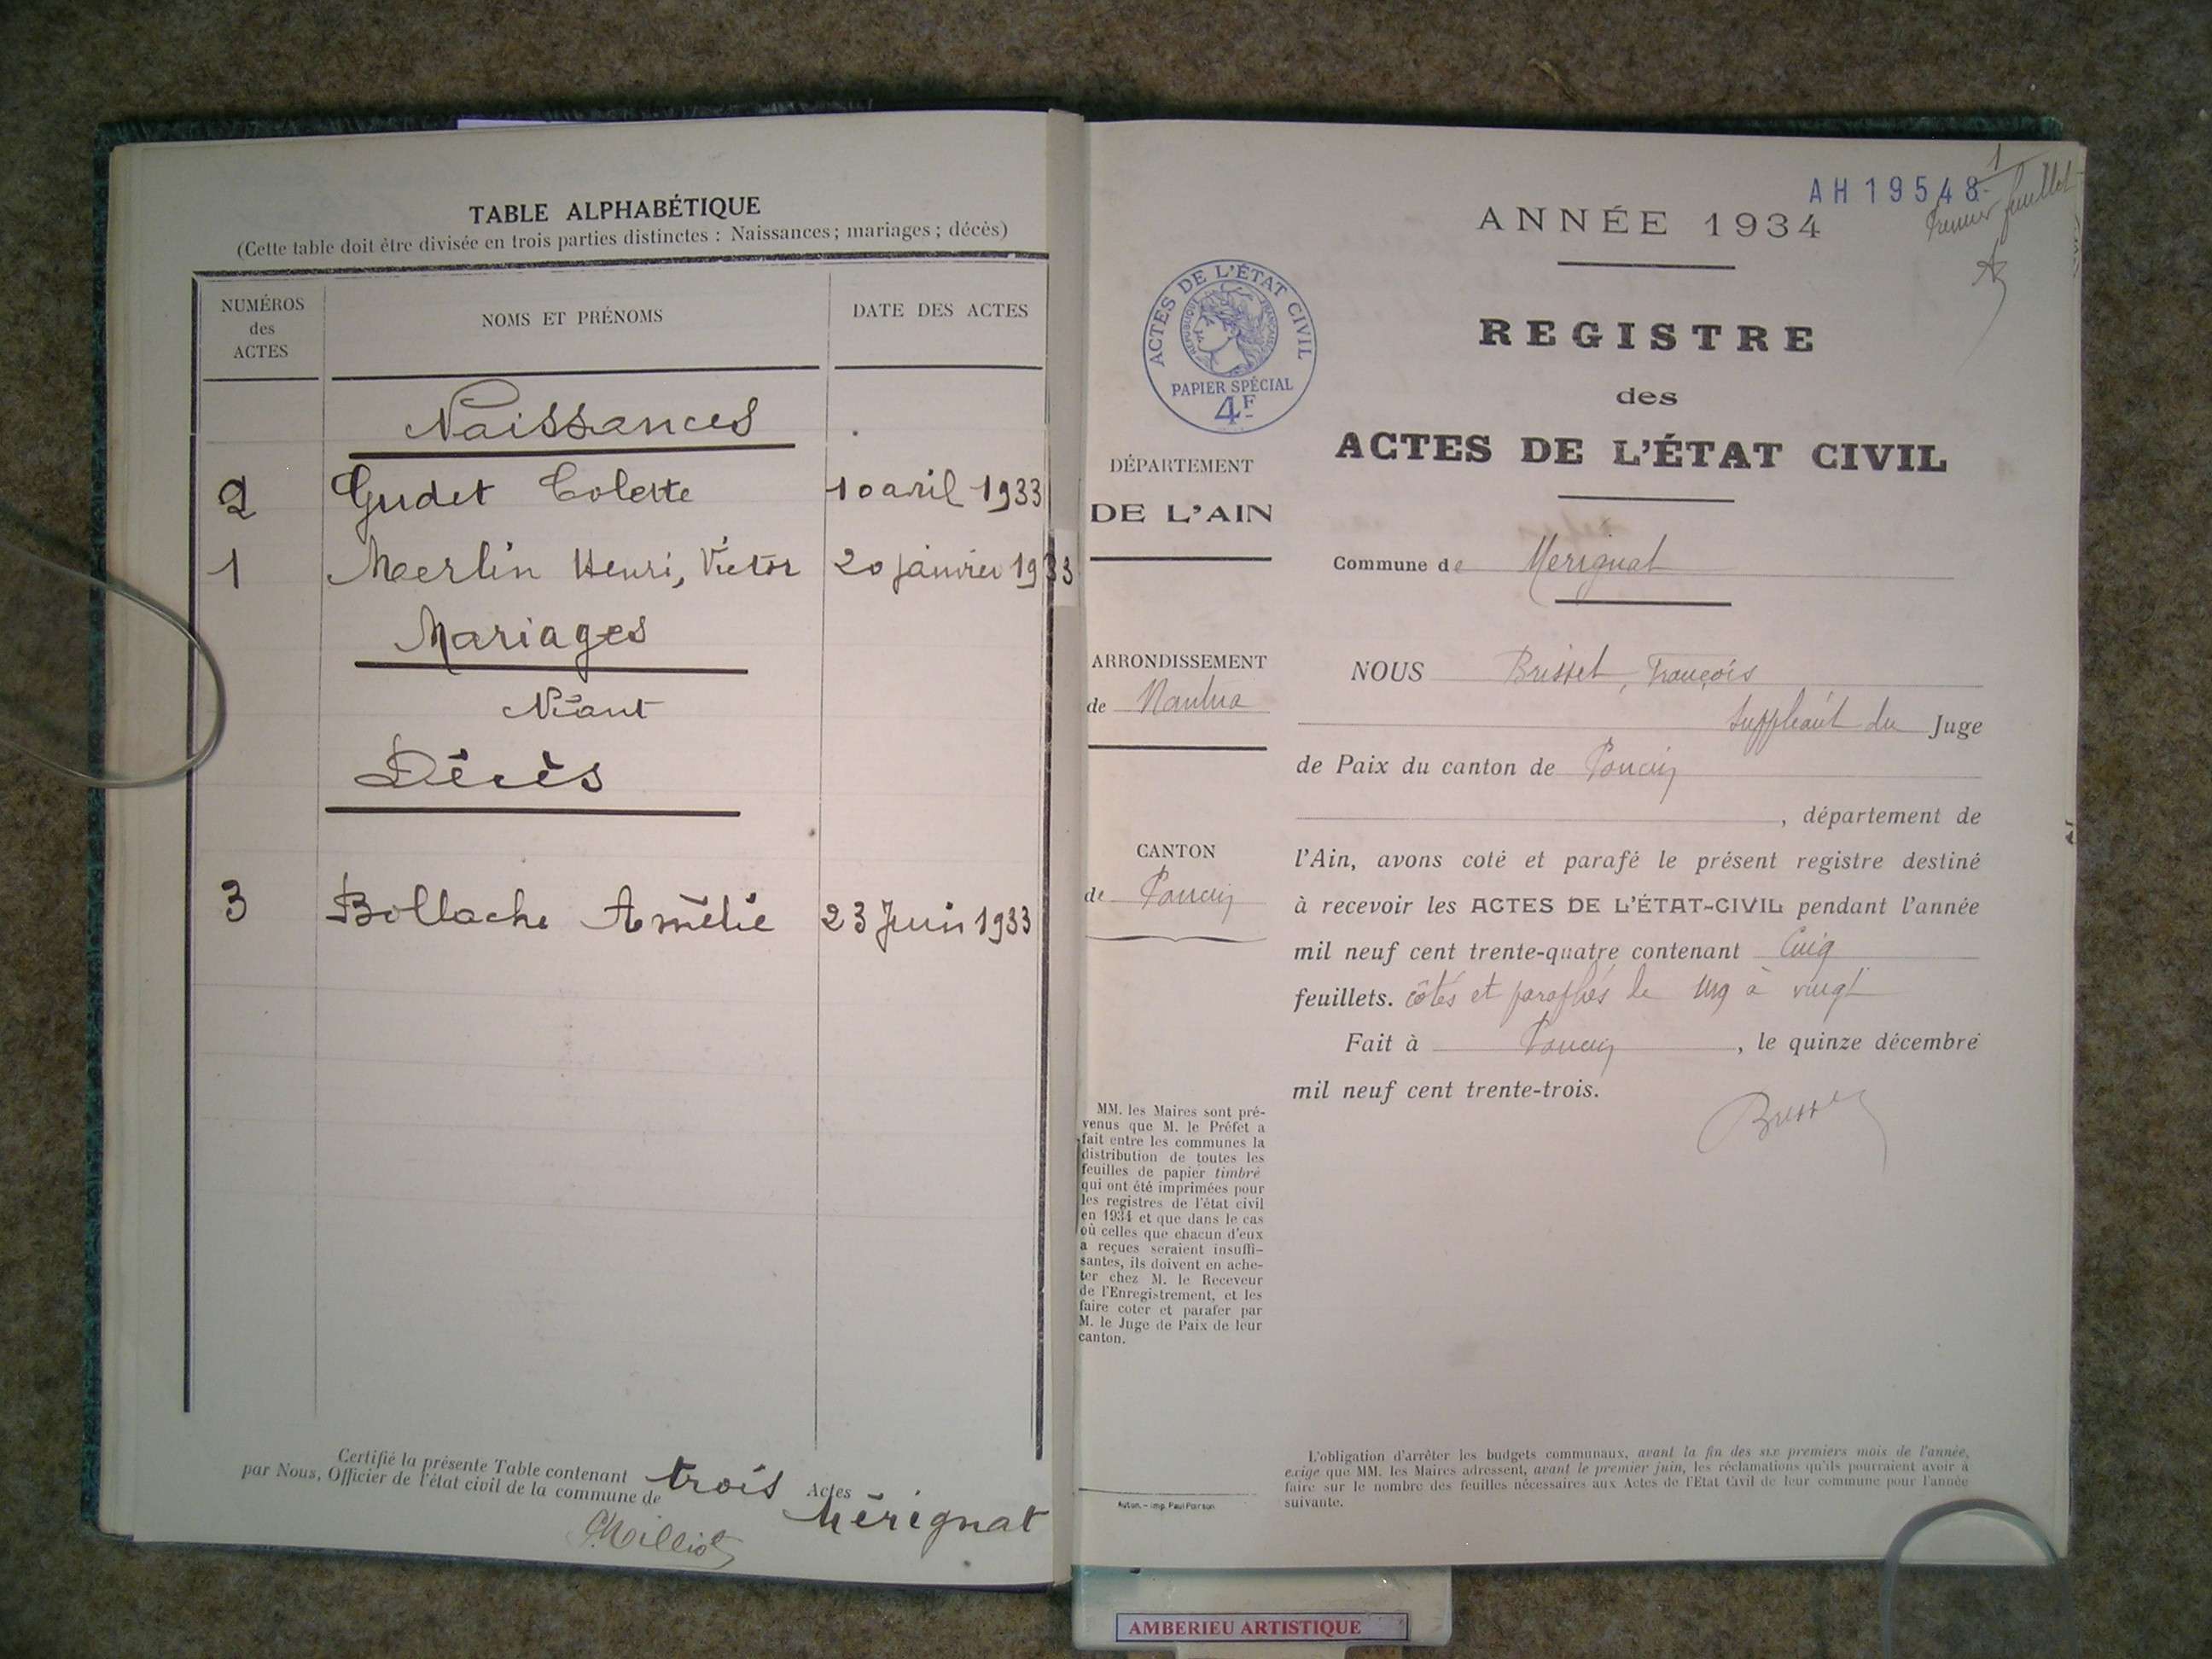 TABLE ALPHABÉTIQUE
(Cette table doit être divisée en trois parties distinctes : Naissances ; mariages ; décès)
NUMÉROS
des
ACTES
NOMS ET PRÉNOMS
DATE DES ACTES
Naissances
2 Gudet Colette 10 avril 1933
1 Merlin Henri, Victor 20 janvier 1933
Mariages
Néant
Décès
3 Bollache Amélie 23 Juin 1933
Certifié la présente Table contenant trois Actes
par Nous, Officier de l'état civil de la commune de Mérignat
Milliot
AH 19548
1
Premier feuillet
ANNÉE 1934
ACTES DE L'ÉTAT CIVIL
RÉPUBLIQUE FRANÇAISE
PAPIER SPÉCIAL
4F
REGISTRE
des
ACTES DE L'ÉTAT CIVIL
DÉPARTEMENT
DE L'AIN
Commune de Merignat
ARRONDISSEMENT
de Nantua
CANTON
de Poncin
NOUS Brisset, François
Suppléant du Juge
de Paix du canton de Poncin
, département de
l'Ain, avons coté et parafé le présent registre destiné
à recevoir les ACTES DE L'ÉTAT-CIVIL pendant l'année
mil neuf cent trente-quatre contenant Cinq
feuillets. côtés et paraphés de un à vingt
Fait à Poncin, le quinze décembre
mil neuf cent trente-trois.
Brisset
MM. les Maires sont pré-
venus que M. le Préfet a
fait entre les communes la
distribution de toutes les
feuilles de papier timbré
qui ont été imprimées pour
les registres de l'état civil
en 1934 et que dans le cas
où celles que chacun d'eux
a reçues seraient insuffi-
santes, ils doivent en ache-
ter chez M. le Receveur
de l'Enregistrement, et les
faire coter et parafer par
M. le Juge de Paix de leur
canton.
Autun. - Imp. Paul Poirson
L'obligation d'arrêter les budgets communaux, avant la fin des six premiers mois de l'année,
exige que MM. les Maires adressent, avant le premier juin, les réclamations qu'ils pourraient avoir à
faire sur le nombre des feuilles nécessaires aux Actes de l'Etat Civil de leur commune pour l'année
suivante.
AMBERIEU ARTISTIQUE